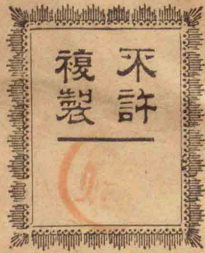 不許
複製